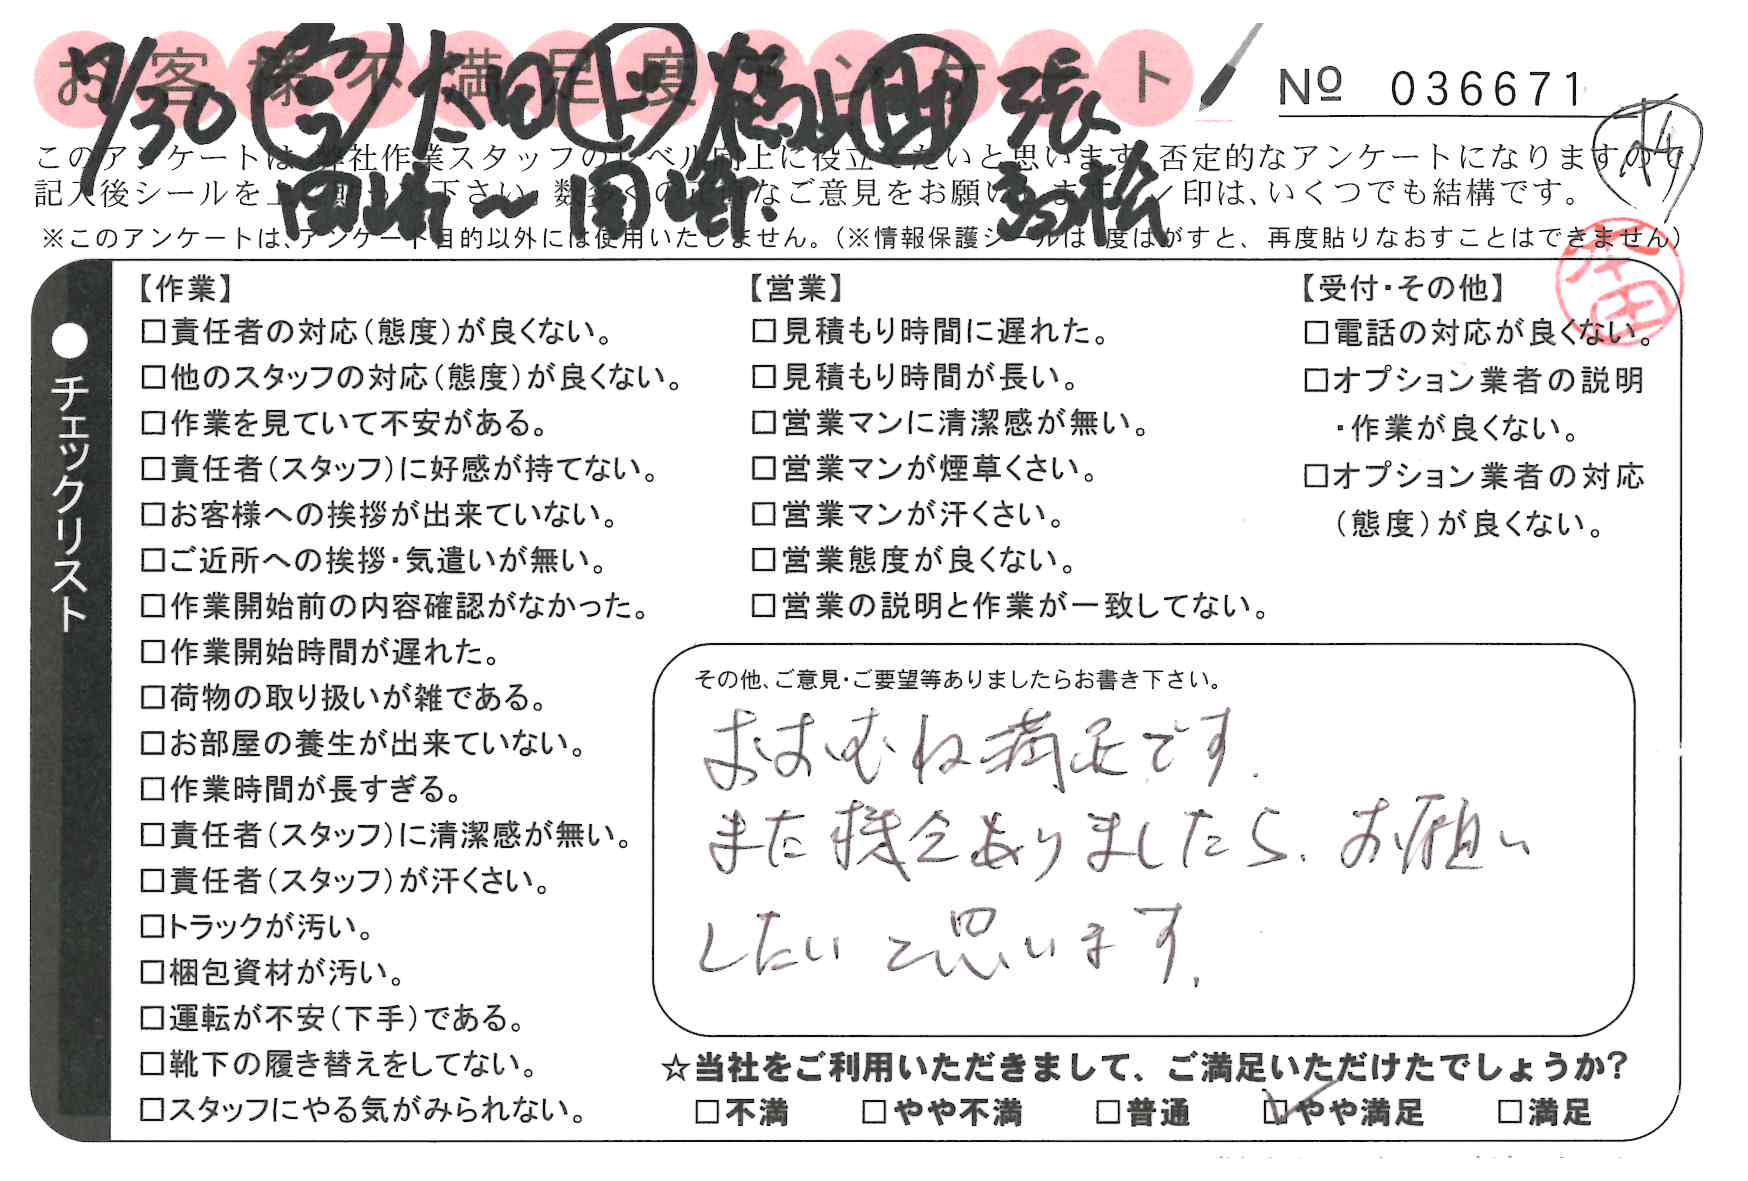 お客様不満足度アンケート
№ 036671
7/30 太田 張
高松
このアンケートは、弊社作業スタッフのレベル向上に役立てたいと思います。否定的なアンケートになりますので、
記入後シールを上に貼って下さい。数多くの正直なご意見をお願いします。✓印は、いくつでも結構です。
※このアンケートは、アンケート目的以外には使用いたしません。(※情報保護シールは1度はがすと、再度貼りなおすことはできません)
本田
●チェックリスト
【作業】
□責任者の対応(態度)が良くない。
□他のスタッフの対応(態度)が良くない。
□作業を見ていて不安がある。
□責任者(スタッフ)に好感が持てない。
□お客様への挨拶が出来ていない。
□ご近所への挨拶・気遣いが無い。
□作業開始前の内容確認がなかった。
□作業開始時間が遅れた。
□荷物の取り扱いが雑である。
□お部屋の養生が出来ていない。
□作業時間が長すぎる。
□責任者(スタッフ)に清潔感が無い。
□責任者(スタッフ)が汗くさい。
□トラックが汚い。
□梱包資材が汚い。
□運転が不安(下手)である。
□靴下の履き替えをしてない。
□スタッフにやる気がみられない。
【営業】
□見積もり時間に遅れた。
□見積もり時間が長い。
□営業マンに清潔感が無い。
□営業マンが煙草くさい。
□営業マンが汗くさい。
□営業態度が良くない。
□営業の説明と作業が一致してない。
【受付・その他】
□電話の対応が良くない。
□オプション業者の説明
・作業が良くない。
□オプション業者の対応
(態度)が良くない。
その他、ご意見・ご要望等ありましたらお書き下さい。
おおむね満足です.
また機会ありましたら、お願い
したいと思います.
☆当社をご利用いただきまして、ご満足いただけたでしょうか?
□不満 □やや不満 □普通 ☑やや満足 □満足